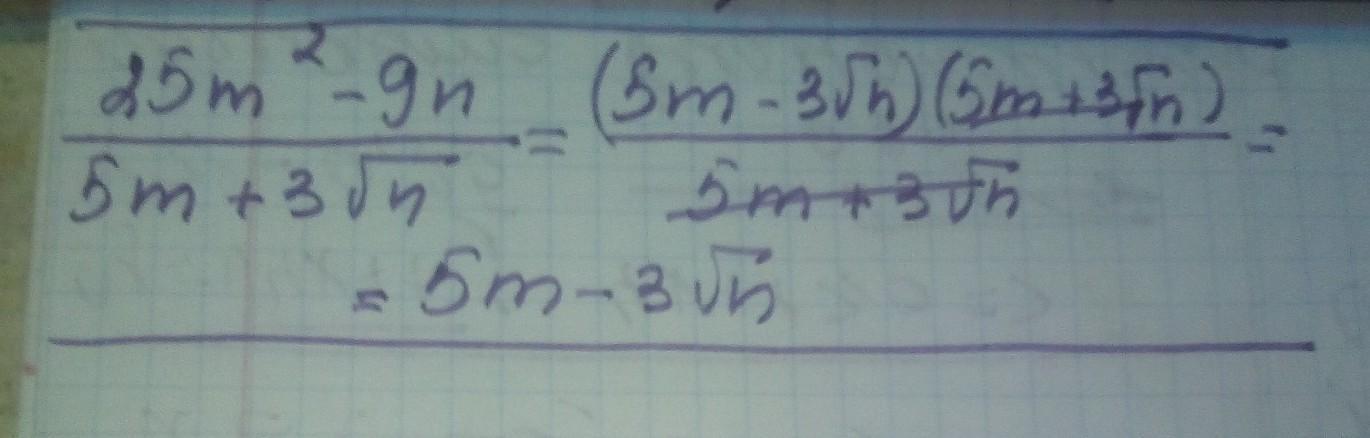 (25m² - 9n)/(5m + 3√n) = ((5m - 3√n)(5m + 3√n))/(5m + 3√n) =
= 5m - 3√n